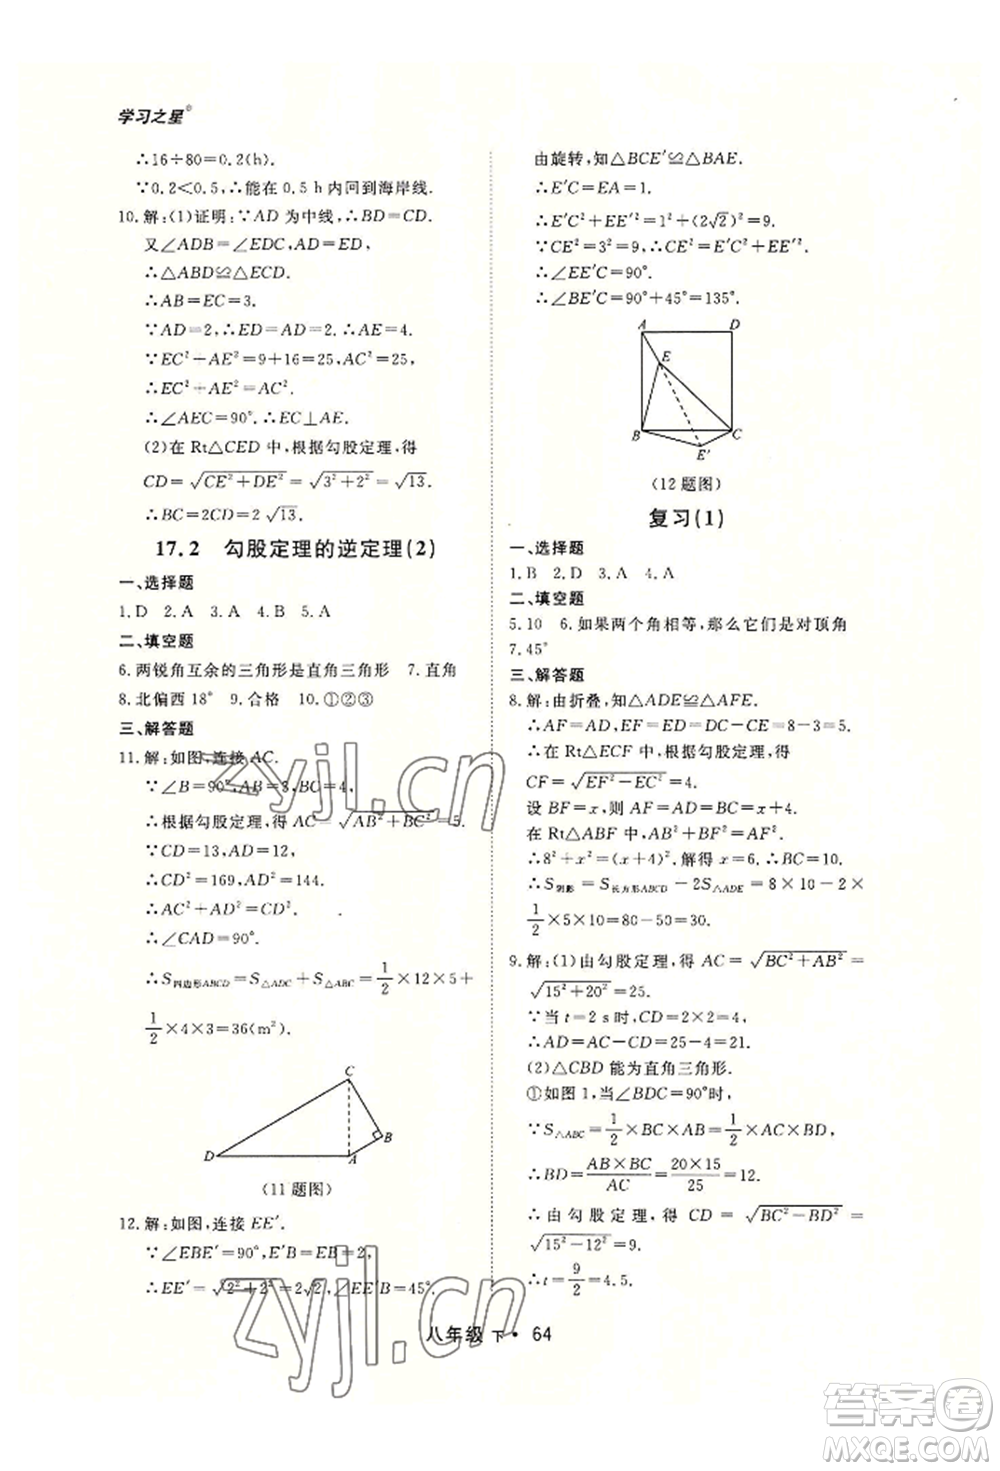 学习之星®
∴16÷80=0.2(h).
∵0.2<0.5,∴能在 0.5 h内回到海岸线.
10.解:(1)证明:∵AD 为中线,∴BD=CD.
又∠ADB=∠EDC,AD=ED.
∴△ABD≌△ECD.
∴AB=EC=3.
∵AD=2,∴ED=2.∴AE=4.
∵EC²+AE²=9+16=25,AC²=25,
∴EC²+AE²=AC².
∴∠AEC=90°.∴EC⊥AE.
(2)在 Rt△CED 中,根据勾股定理,得
CD=√(CE²+DE²)=√(3²+2²)=√13.
∴BC=2CD=2√13.
17.2 勾股定理的逆定理(2)
一、选择题
1.D 2.A 3.A 4.B 5.A
二、填空题
6.两锐角互余的三角形是直角三角形 7.直角
8.北偏西 18° 9.合格 10.①②③
三、解答题
11.解:如图,连接 AC.
∵∠B=90°,AB=3,BC=4,
∴根据勾股定理,得 AC=√(AB²+BC²)=5.
∵CD=13,AD=12,
∴CD²=169,AD²=144.
∴AC²+AD²=CD².
∴∠CAD=90°.
∴S四边形ABCD=S△ADC+S△ABC=1/2×12×5+
1/2×4×3=36(m²).
C
D
A
B
(11题图)
12.解:如图,连接 EE′.
∵∠EBE′=90°,E′B=EB=2,
∴EE′=√(2²+2²)=2√2,∠EE′B=45°.
由旋转,知△BCE′≌△BAE.
∴E′C=EA=1.
∴E′C²+EE′²=1²+(2√2)²=9.
∵CE²=3²=9,∴CE²=E′C²+EE′².
∴∠EE′C=90°.
∴∠BE′C=90°+45°=135°.
A
D
E
B
C
E′
(12题图)
复习(1)
一、选择题
1.B 2.A 3.A 4.A
二、填空题
5.10 6.如果两个角相等,那么它们是对顶角
7.45°
三、解答题
8.解:由折叠,知△ADE≌△AFE.
∴AF=AD,EF=ED=DC-CE=8-3=5.
∴在 Rt△ECF 中,根据勾股定理,得
CF=√(EF²-EC²)=4.
设 BF=x,则 AF=AD=BC=x+4.
在 Rt△ABF 中,AB²+BF²=AF².
∴8²+x²=(x+4)²,解得 x=6.∴BC=10.
∴S阴影=S长方形ABCD-2S△ADE=8×10-2×
1/2×5×10=80-50=30.
9.解:(1)由勾股定理,得 AC=√(BC²+AB²)=
√(15²+20²)=25.
∵当 t=2 s时,CD=2×2=4,
∴AD=AC-CD=25-4=21.
(2)△CBD 能为直角三角形.
①如图 1,当∠BDC=90°时,
∵S△ABC=1/2×AC×BD=1/2×AB×BC,
∴BD=(AB×BC)/AC=(20×15)/25=12.
∴由勾股定理,得 CD=√(BC²-BD²)=
√(15²-12²)=9.
∴t=9/2=4.5.
八年级 下 · 64
zyjl.cn
zyjl.cn
答案卷
MXQE.COM